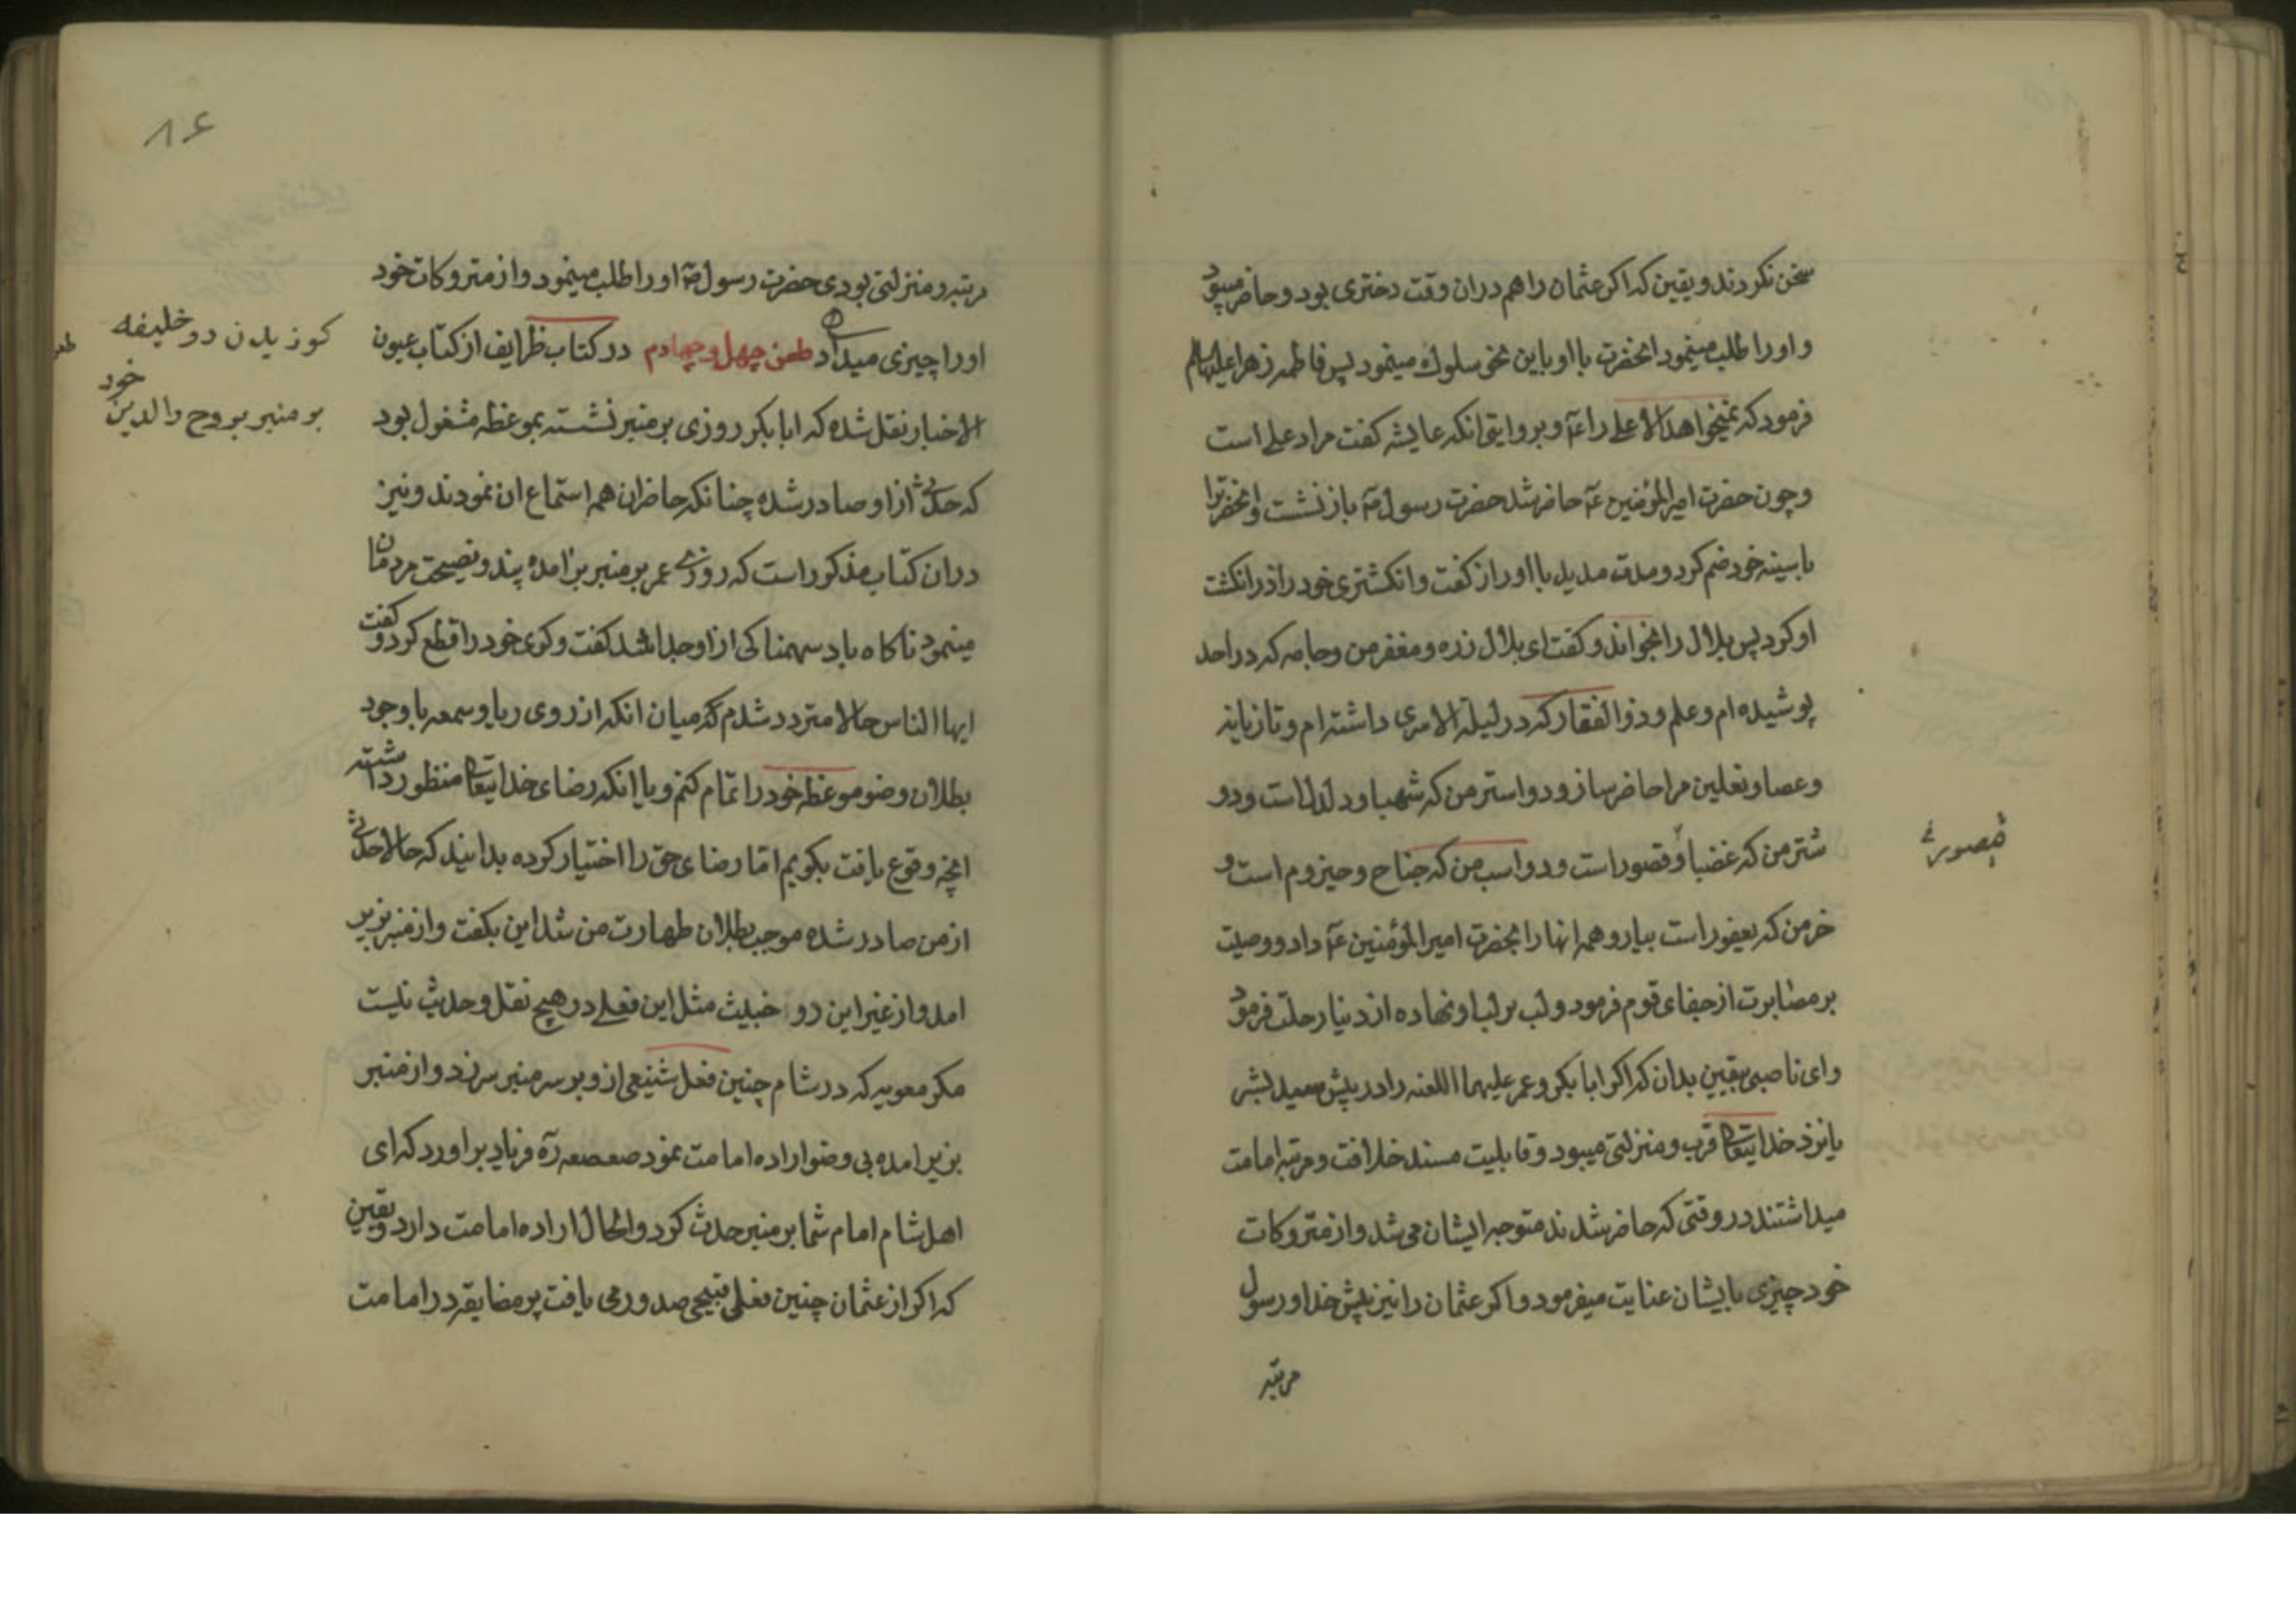 سخن نکردند و یقین که اکر عثمان را هم دران وقت دختری بود و حاضر میبود
و اورا طلب مینمود انحضرت با او باین نحو سلوك مینمود پس فاطمه زهرا علیهاالسلام
فرمود که نمیخواهد الا علی را عٓ و بروایتی انکه عایشه کفت مراد علی است
و چون حضرت امیرالمؤمنین عٓ حاضر شد حضرت رسول صٓ باز نشست و انحضرترا
با سینه خود ضم کرد و مدت مدید با او راز کفت و انکشتری خود را در انکشت
او کرد پس بلال را بخواند و کفت ای بلال زره و مغفر من و جامه که در احد
پوشیده ام و علم و ذوالفقار که در لیلة الاسری داشته ام و تازیانه
و عصا و نعلین مرا حاضر ساز و دو استر من که شهبا و دلدل است و دو
شتر من که غضبا و قصور است و دو اسب من که جناح و حیزوم است و
خر من که یعفور است بیار و همه انها را بحضرت امیرالمؤمنین عٓ داد و وصیت
بر مصابرت از جفای قوم فرمود و لب بر لب او نهاده از دنیا رحلت فرمود
و ای ناصبی یقین بدان که اکر ابابکر و عمر علیهما اللعنه را در پیش سید بشر
یا نزد خدایتعالی قرب و منزلتی میبود و قابلیت مسند خلافت و مرتبه امامت
میداشتند در وقتی که حاضر شدند متوجه ایشان می شد و از متروکات
خود چیزی بایشان عنایت میفرمود و اکر عثمان را نیز پیش خدا و رسول
مرتبه
قصوری
۸۶
مرتبه و منزلتی بودی حضرت رسول صٓ اورا طلب مینمود و از متروکات خود
اورا چیزی میداد طعن چهل و چهارم در کتاب ظرایف از کتاب عیون
الاخبار نقل شده که ابابکر روزی بر منبر نشسته بموعظه مشغول بود
که حدثی از او صادر شده چنانکه حاضران همه استماع ان نمودند و نیز
دران کتاب مذکور است که روزی عمر بر منبر برامده پند و نصیحت مردمان
مینمود ناکاه باد سهمناکی از او جدا شد کفت و کوی خود را قطع کرد و کفت
ایها الناس حالا متردد شدم که میان انکه از روی ریا و سمعه با وجود
بطلان وضو موعظه خود را تمام کنم و یا انکه رضای خدایتعالی منظور داشته
انچه وقوع یافت بکویم اما رضای حق را اختیار کرده بدانید که حالا حدثی
از من صادر شده موجب بطلان طهارت من شد این بکفت و از منبر بزیر
امد و از غیر این دو خبیث مثل این فعلی در هیچ نقل و حدیث نیست
مکر معویه که در شام چنین فعل شنیعی از و بر سر منبر سر زد و از منبر
بزیر امده بی وضو اراده امامت نمود صعصعه رٓه فریاد براورد که ای
اهل شام امام شما بر منبر حدث کرد و الحال اراده امامت دارد و یقین
که اکر از عثمان چنین فعلی قبیحی صدور می یافت پر مضایقه در امامت
کوزیدن دو خلیفه
بر منبر بروح والدین خود